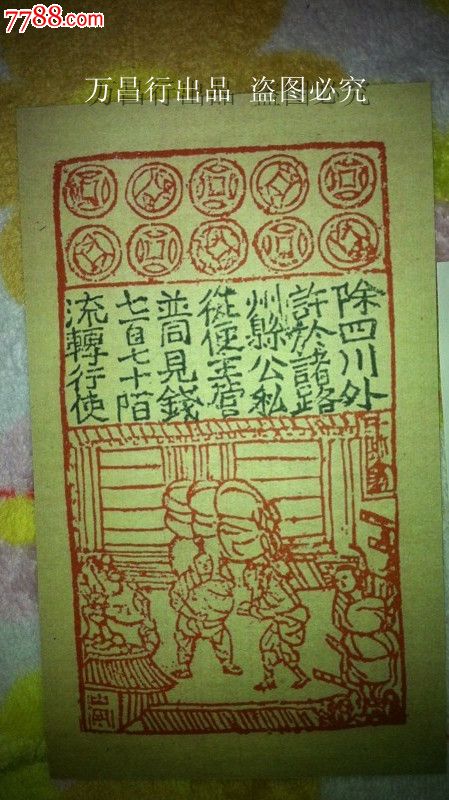 7788.com
万昌行出品 盗图必究
除四川外
許於諸路
州縣公私
從便主管
並同見錢
七百七十陌
流轉行使